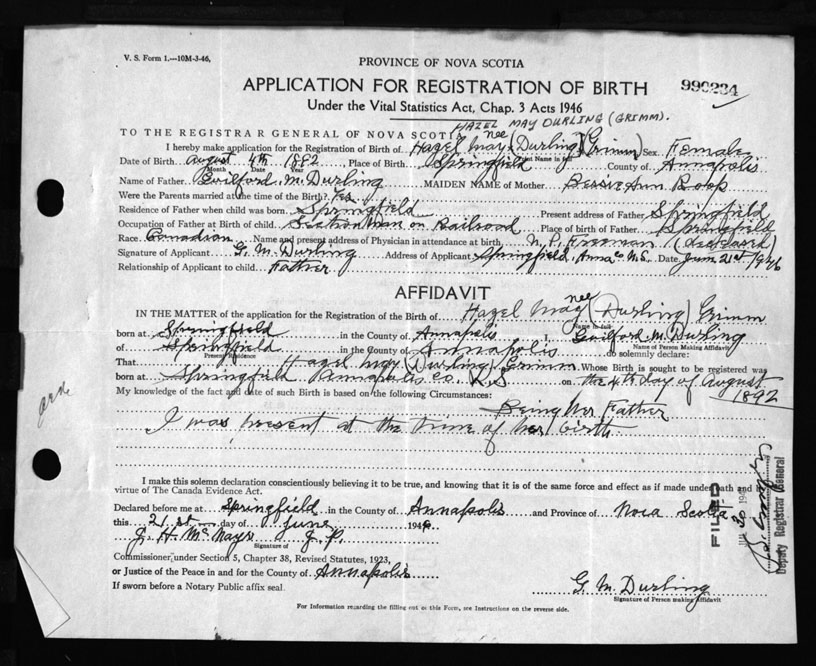 V. S. Form 1.—10M-3-46,
PROVINCE OF NOVA SCOTIA
APPLICATION FOR REGISTRATION OF BIRTH
990234
Under the Vital Statistics Act, Chap. 3 Acts 1946
HAZEL MAY DURLING (GRIMM).
TO THE REGISTRAR GENERAL OF NOVA SCOTIA
I hereby make application for the Registration of Birth of Hazel May nee (Durling) Grimm Sex Female
Print Name in full
Date of Birth August 4th 1892 Place of Birth Springfield County of Annapolis
Month Date Year
Name of Father Guilford M. Durling MAIDEN NAME of Mother Bessie Ann Roop
Were the Parents married at the time of the Birth? Yes
Residence of Father when child was born Springfield Present address of Father Springfield
Occupation of Father at Birth of child Sectionman on Railroad Place of birth of Father Springfield
Race Canadian Name and present address of Physician in attendance at birth N. P. Freeman (Deceased)
Signature of Applicant G. M. Durling Address of Applicant Springfield Anna Co N.S. Date June 21st 1946
Relationship of Applicant to child Father
AFFIDAVIT
IN THE MATTER of the application for the Registration of the Birth of Hazel May nee (Durling) Grimm
Name in full
born at Springfield in the County of Annapolis I Guilford M. Durling
Name of Person Making Affidavit
of Springfield in the County of Annapolis do solemnly declare:
Present Residence
That Hazel May (Durling) Grimm Whose Birth is sought to be registered was
born at Springfield Annapolis Co. N.S on the 4th day of August
1892
My knowledge of the fact and date of such Birth is based on the following Circumstances:
Being her Father
I was present at the time of her birth
I make this solemn declaration conscientiously believing it to be true, and knowing that it is of the same force and effect as if made under oath and by
virtue of The Canada Evidence Act.
Declared before me at Springfield in the County of Annapolis and Province of Nova Scotia
this 21st day of June 1946
J. H. McNayr J. P.
Signature of
Commissioner under Section 5, Chapter 38, Revised Statutes, 1923,
or Justice of the Peace in and for the County of Annapolis
If sworn before a Notary Public affix seal.
G. M. Durling
Signature of Person making Affidavit
For Information regarding the filling out of this Form, see Instructions on the reverse side.
FILED
Deputy Registrar General